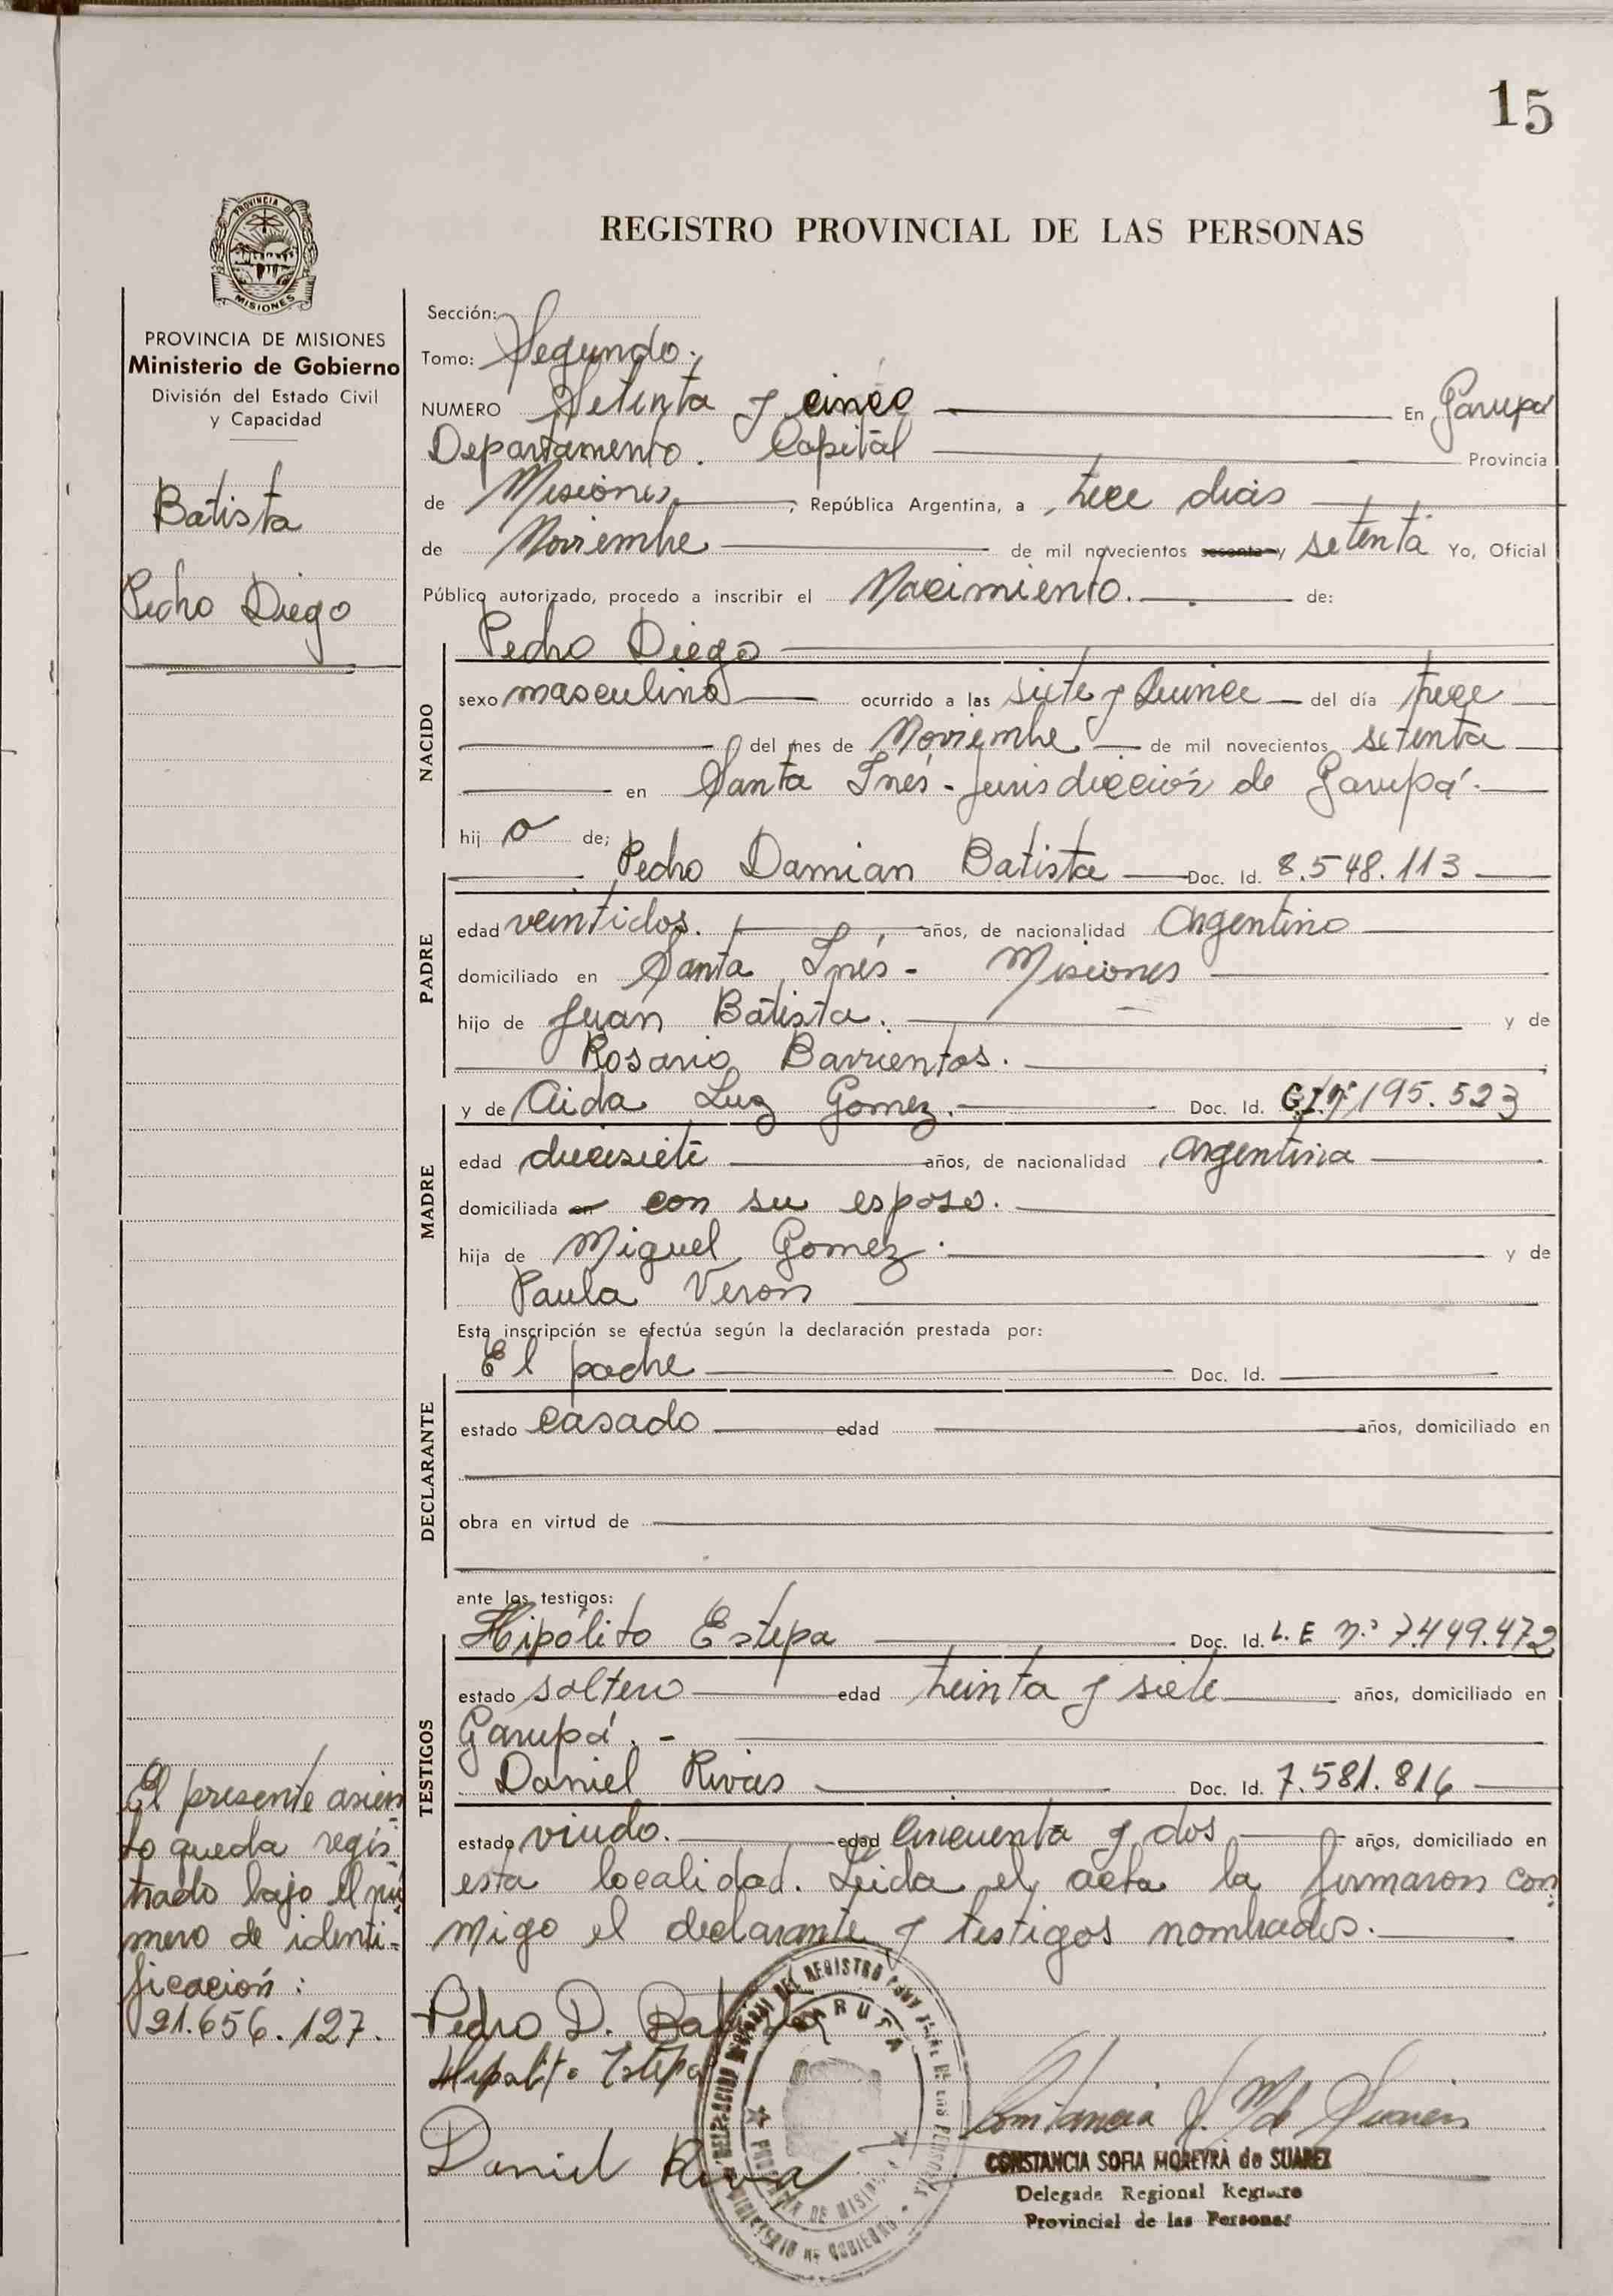 15
PROVINCIA DE
MISIONES
REGISTRO PROVINCIAL DE LAS PERSONAS
PROVINCIA DE MISIONES
Ministerio de Gobierno
División del Estado Civil
y Capacidad
Batista
Pedro Diego
El presente asien
to queda regis
trado bajo el nú
mero de identi-
ficación:
21.656.127.
Sección:
Tomo: Segundo.
NUMERO Setenta y cinco En Garupá
Departamento. Capital Provincia
de Misiones, República Argentina, a trece dias
de Noviembre de mil novecientos sesenta y setenta Yo, Oficial
Público autorizado, procedo a inscribir el Nacimiento. de:
NACIDO
Pedro Diego
sexo masculino ocurrido a las siete y Quince del día trece
del mes de Noviembre de mil novecientos setenta
en Santa Inés - Jurisdicción de Garupá.
hij o de;
PADRE
Pedro Damian Batista Doc. Id. 8.548.113
edad veintidos. años, de nacionalidad Argentino
domiciliado en Santa Inés - Misiones
hijo de Juan Batista. y de
Rosario Barrientos.
MADRE
y de Aida Luz Gomez. Doc. Id. 195.523
edad diecisiete años, de nacionalidad Argentina
domiciliada en con su esposo.
hija de Miguel Gomez. y de
Paula Veron
Esta inscripción se efectúa según la declaración prestada por:
DECLARANTE
El padre Doc. Id.
estado casado edad años, domiciliado en
obra en virtud de
ante los testigos:
TESTIGOS
Hipólito Estepa Doc. Id. L. E n.º 7.449.472
estado soltero edad treinta y siete años, domiciliado en
Garupá. -
Daniel Rivas Doc. Id. 7.581.816
estado viudo. edad cincuenta y dos años, domiciliado en
esta localidad. Leida el acta la firmaron con
migo el declarante y testigos nombrados.
Pedro D. Batista
Hipolito Estepa
Daniel Rivas
DEL REGISTRO
GARUPA
MINISTERIO DE GOBIERNO
CONSTANCIA SOFIA MOREYRA de SUAREZ
Delegada Regional Registro
Provincial de las Personas